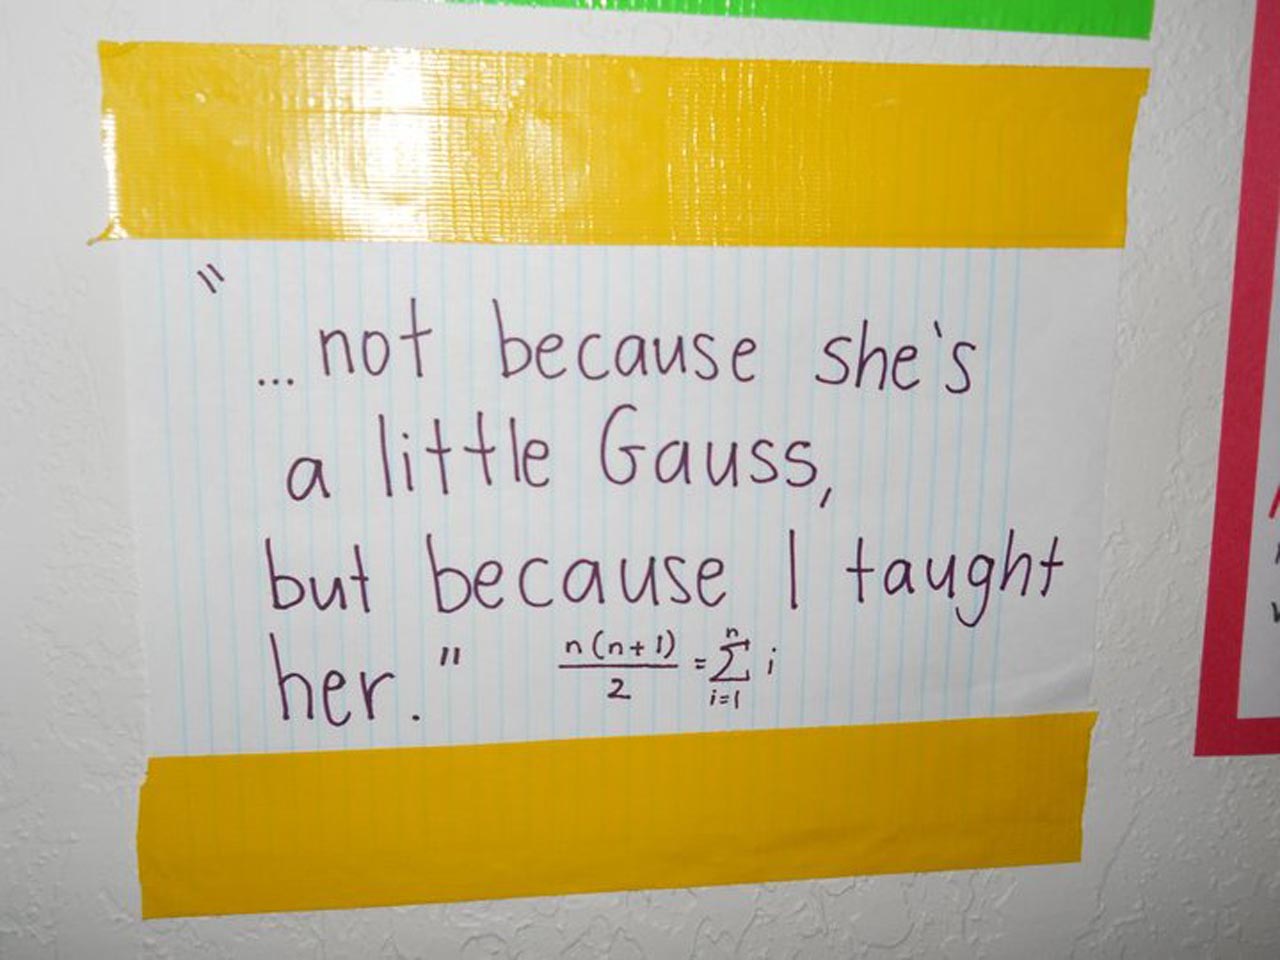 "
... not because she's
a little Gauss,
but because I taught
her." n(n+1)/2 = ∑ⁿᵢ₌₁ i